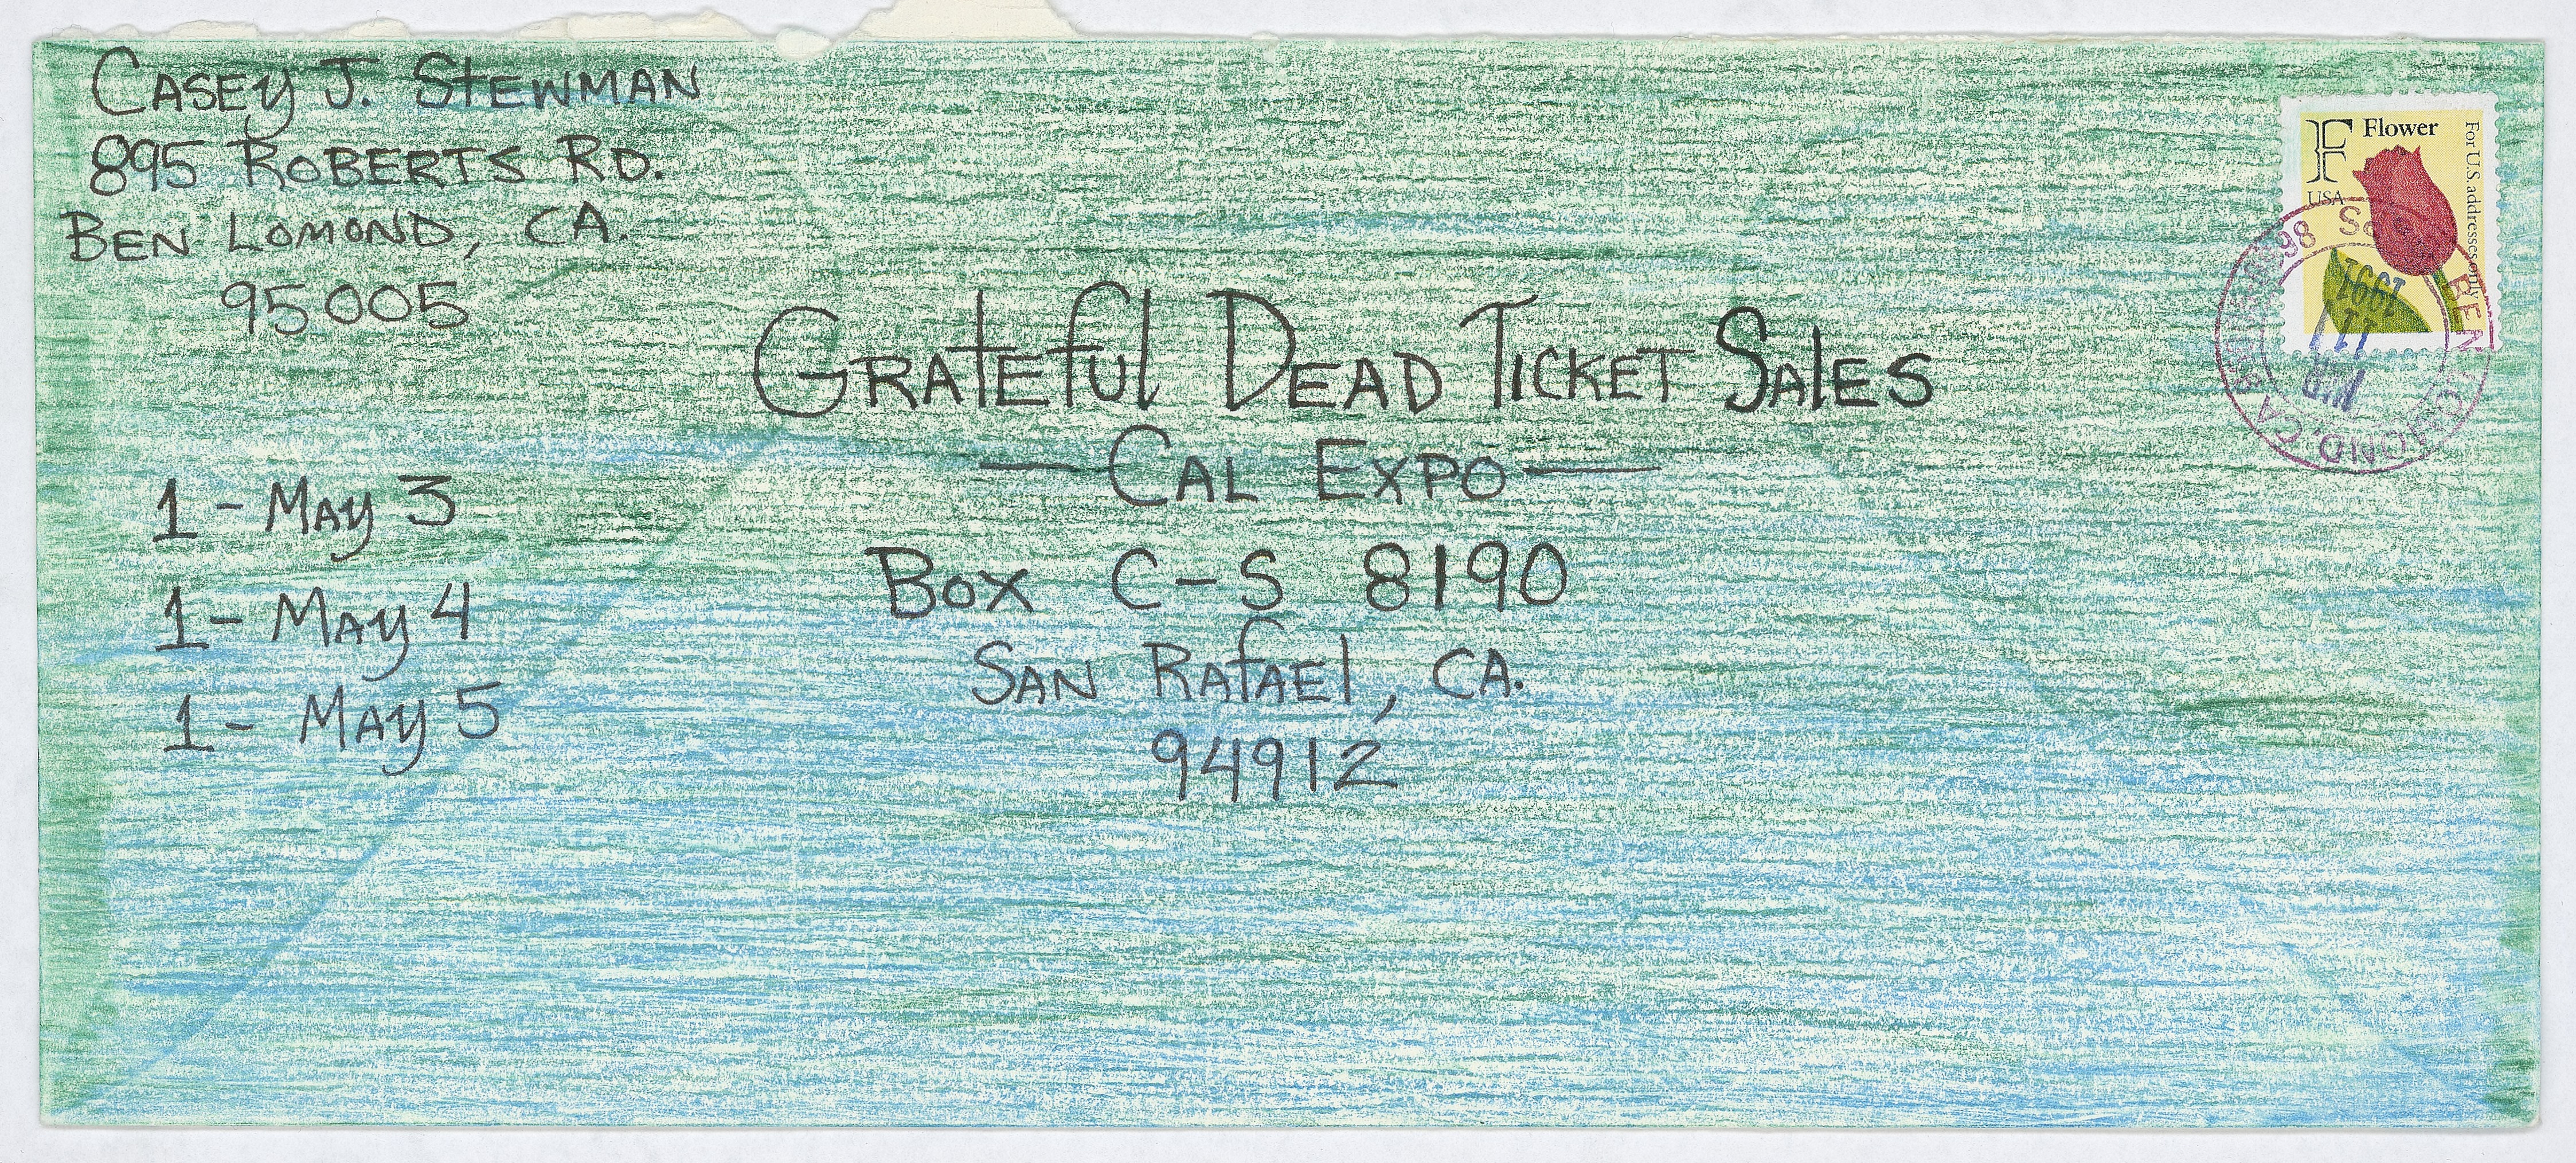 CASEY J. STEWMAN
895 ROBERTS RD.
BEN LOMOND, CA.
95005
GRATEFUL DEAD TICKET SALES
— CAL EXPO —
BOX C-S 8190
SAN RAFAEL, CA.
94912
1 - MAY 3
1 - MAY 4
1 - MAY 5
F Flower
USA
For U.S. addresses only
BEN LOMOND, CA
MAR
11
1991